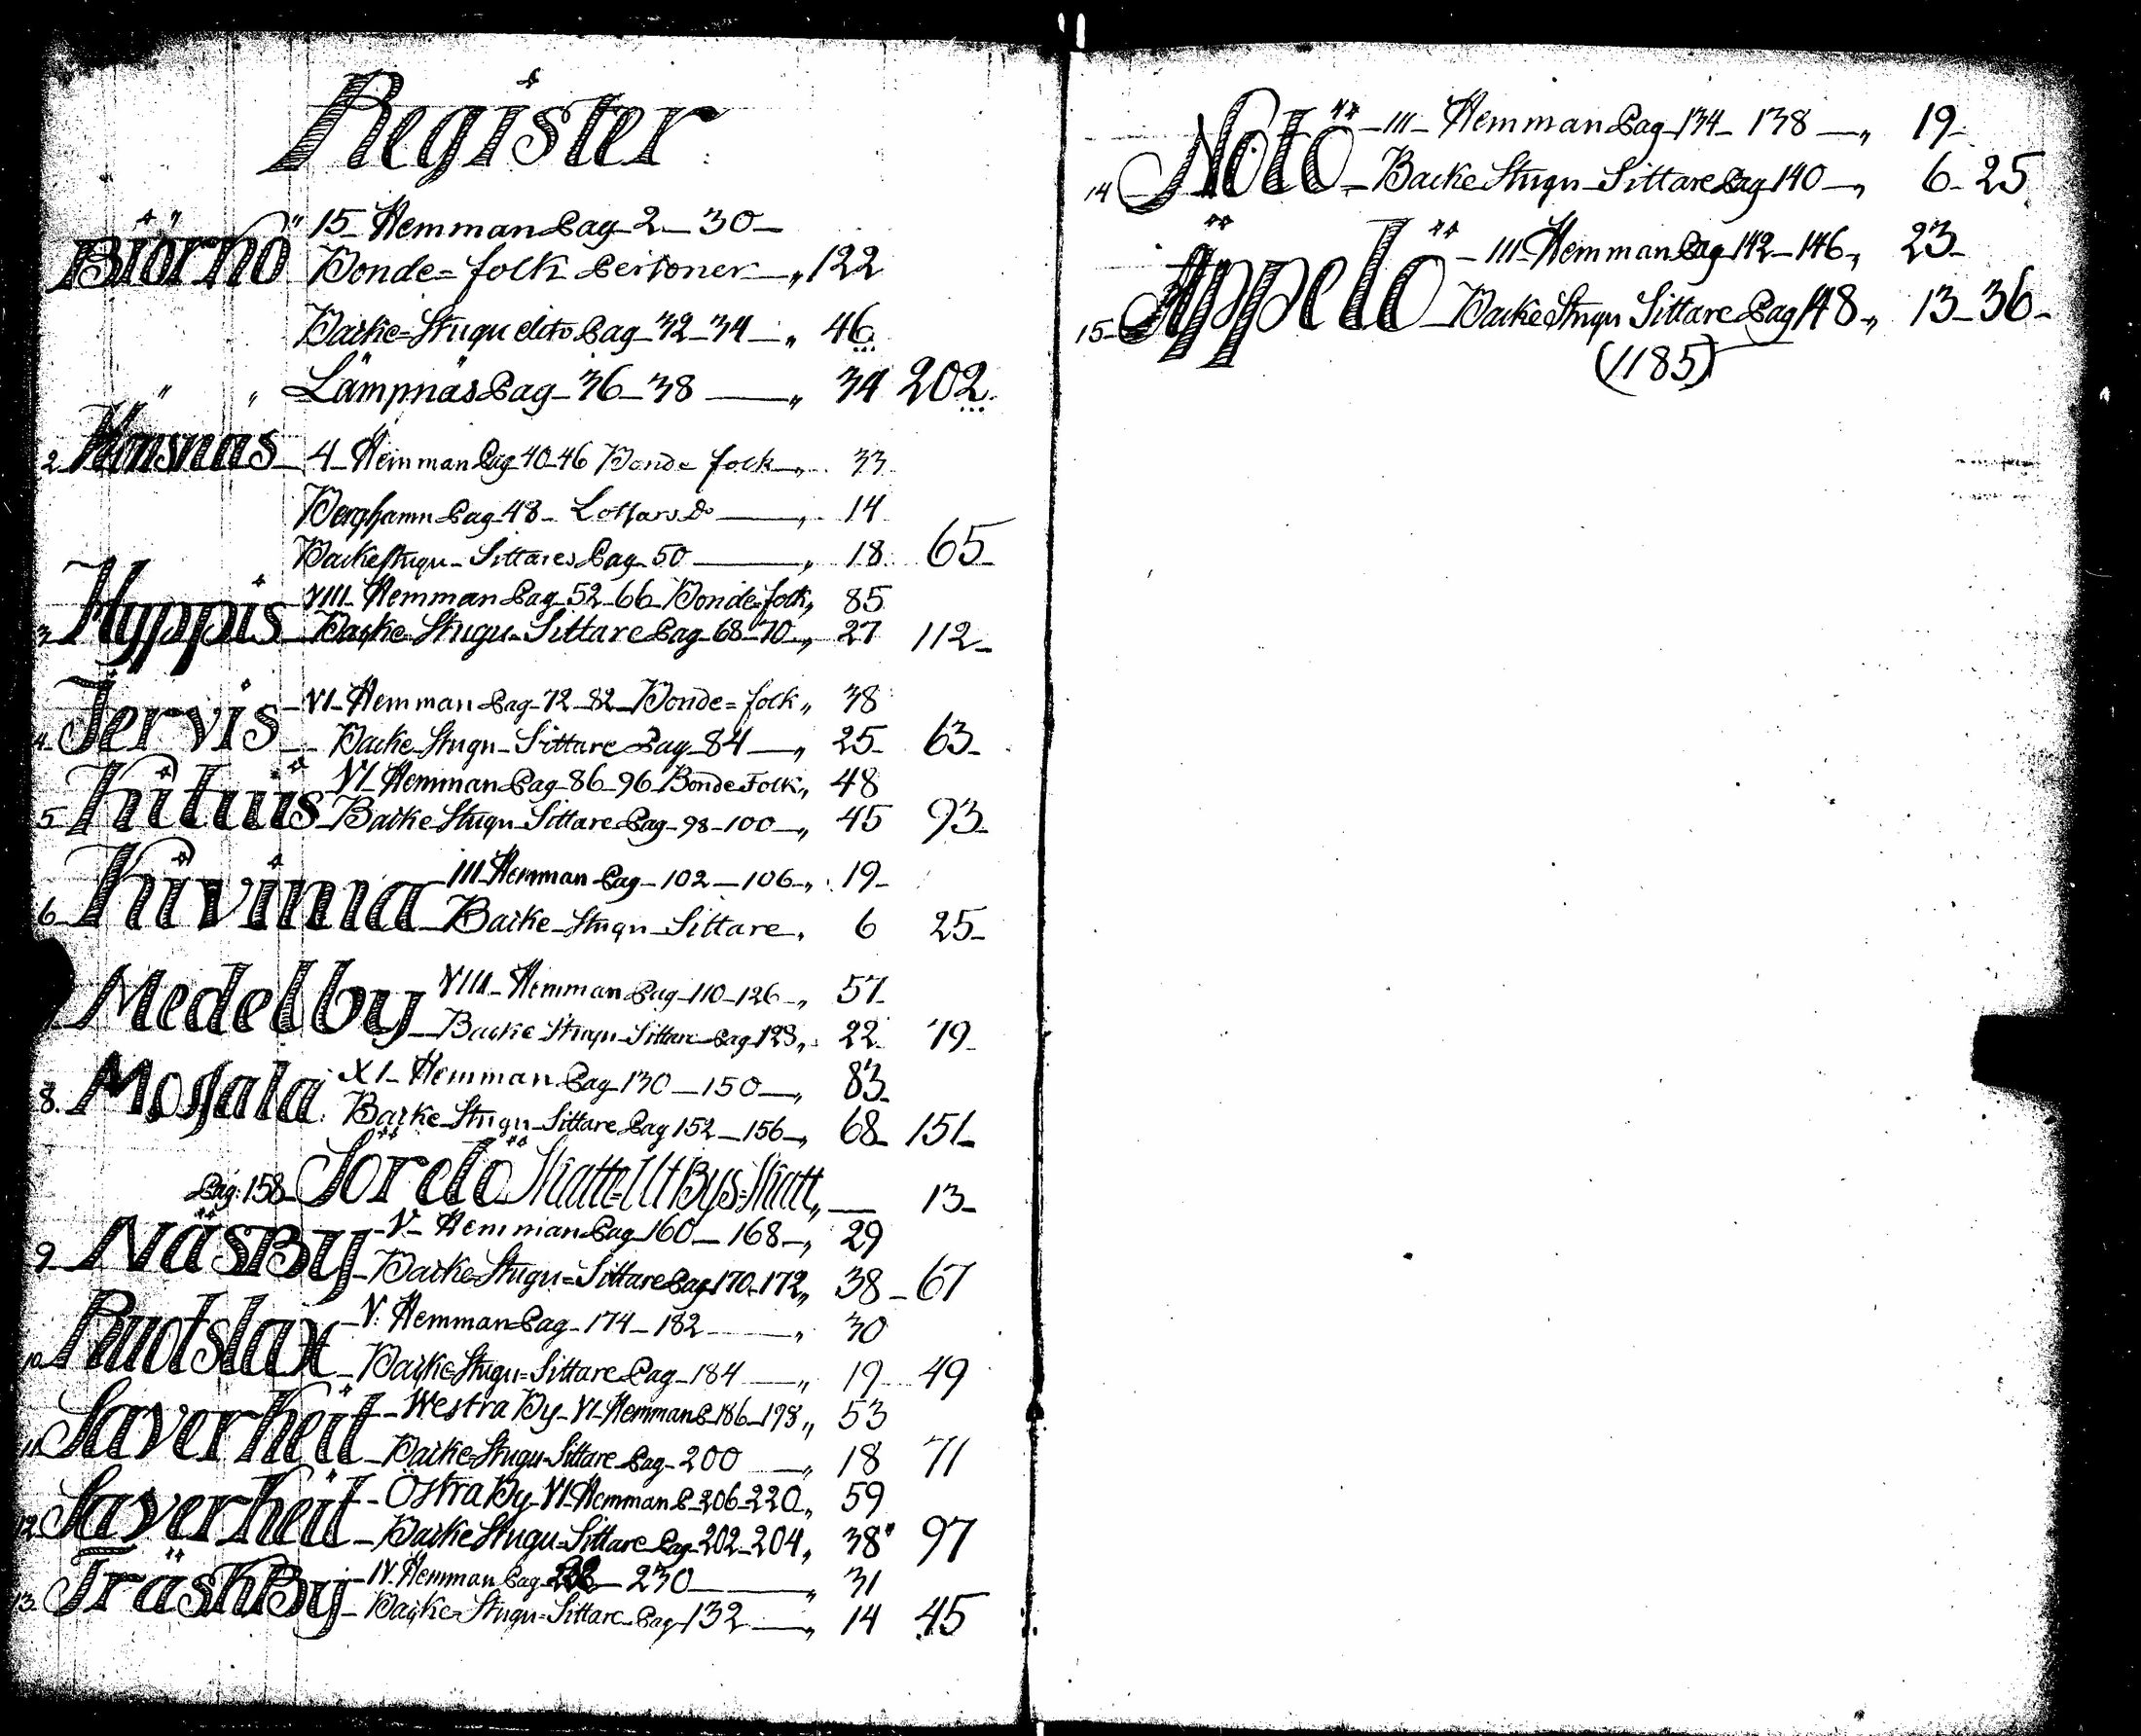 Register
Biörnö 15 Hemman Pag 2 - 30 -
Bonde=folk Personer - „ 122
Backe=Stugu dito Pag - 32 - 34 - „ 46
" " Lämpnäs Pag - 36 - 38 - „ 34 202
2 4 - Hemman Pag 40-46 Bonde folk - „ 33
Berghamn Pag - 48 - - „ 14
Backe stugu - Sittares Pag - 50 - „ 18 65 -
3 Hyppis VIII - Hemman Pag - 52 - 66 - Bonde=folk „ 85
Backe=Stugu=Sittare Pag - 68 - 70 - „ 27 112 -
4 Jervis - VI - Hemman Pag - 72 - 82 - Bonde=folk „ 38
Backe-Stugu-Sittare Pag - 84 - „ 25 - 63 -
5 Kituis VI Hemman Pag - 86 - 96 Bonde Folk „ 48
Backe Stugu-Sittare Pag - 98 - 100 - „ 45 93 -
6 Kivima III Hemman Pag - 102 - 106 - „ 19 -
Backe-Stugu-Sittare „ 6 25 -
Medelby VIII - Hemman Pag - 110 - 126 - „ 57
Backe Stugu-Sittare Pag 128 „ 22 79 -
8. Mossala XI - Hemman Pag 130 - 150 - „ 83 -
Backe-Stugu-Sittare Pag 152 - 156 - „ 68 - 151 -
Pag: 158 - Sörelö Skatte=Ut Bys=Skatt „ - 13 -
9 NäsBy - V - Hemman Pag 160 - 168 - „ 29
Backe=Stugu=Sittare Pag 170 - 172 „ 38 - 67
10 - V. Hemman Pag - 174 - 182 - „ 30
Backe=Stugu=Sittare Pag - 184 - „ 19 - 49
11 Saverkeit - Westra By - VI - Hemman P 186 - 198 „ 53
Backe=Stugu-Sittare Pag - 200 - „ 18 71
12 Saverkeit - Östra By - VI - Hemman P - 206 - 220 „ 59
Backe Stugu=Sittare Pag - 202 - 204 „ 38 97
13 TräskBy - IV - Hemman Pag - 230 - „ 31
Backe=Stugu=Sittare Pag - 132 - „ 14 45
14 Nötö - III - Hemman Pag - 134 - 138 - „ 19 -
Backe Stugu-Sittare Pag 140 - „ 6 - 25
15 Äppelö - III - Hemman Pag - 142 - 146 - „ 23 -
Backe Stugu Sittare Pag 148 - „ 13 - 36 -
(1185)